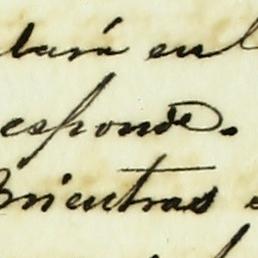 tará en l
esponde.
Mientras e